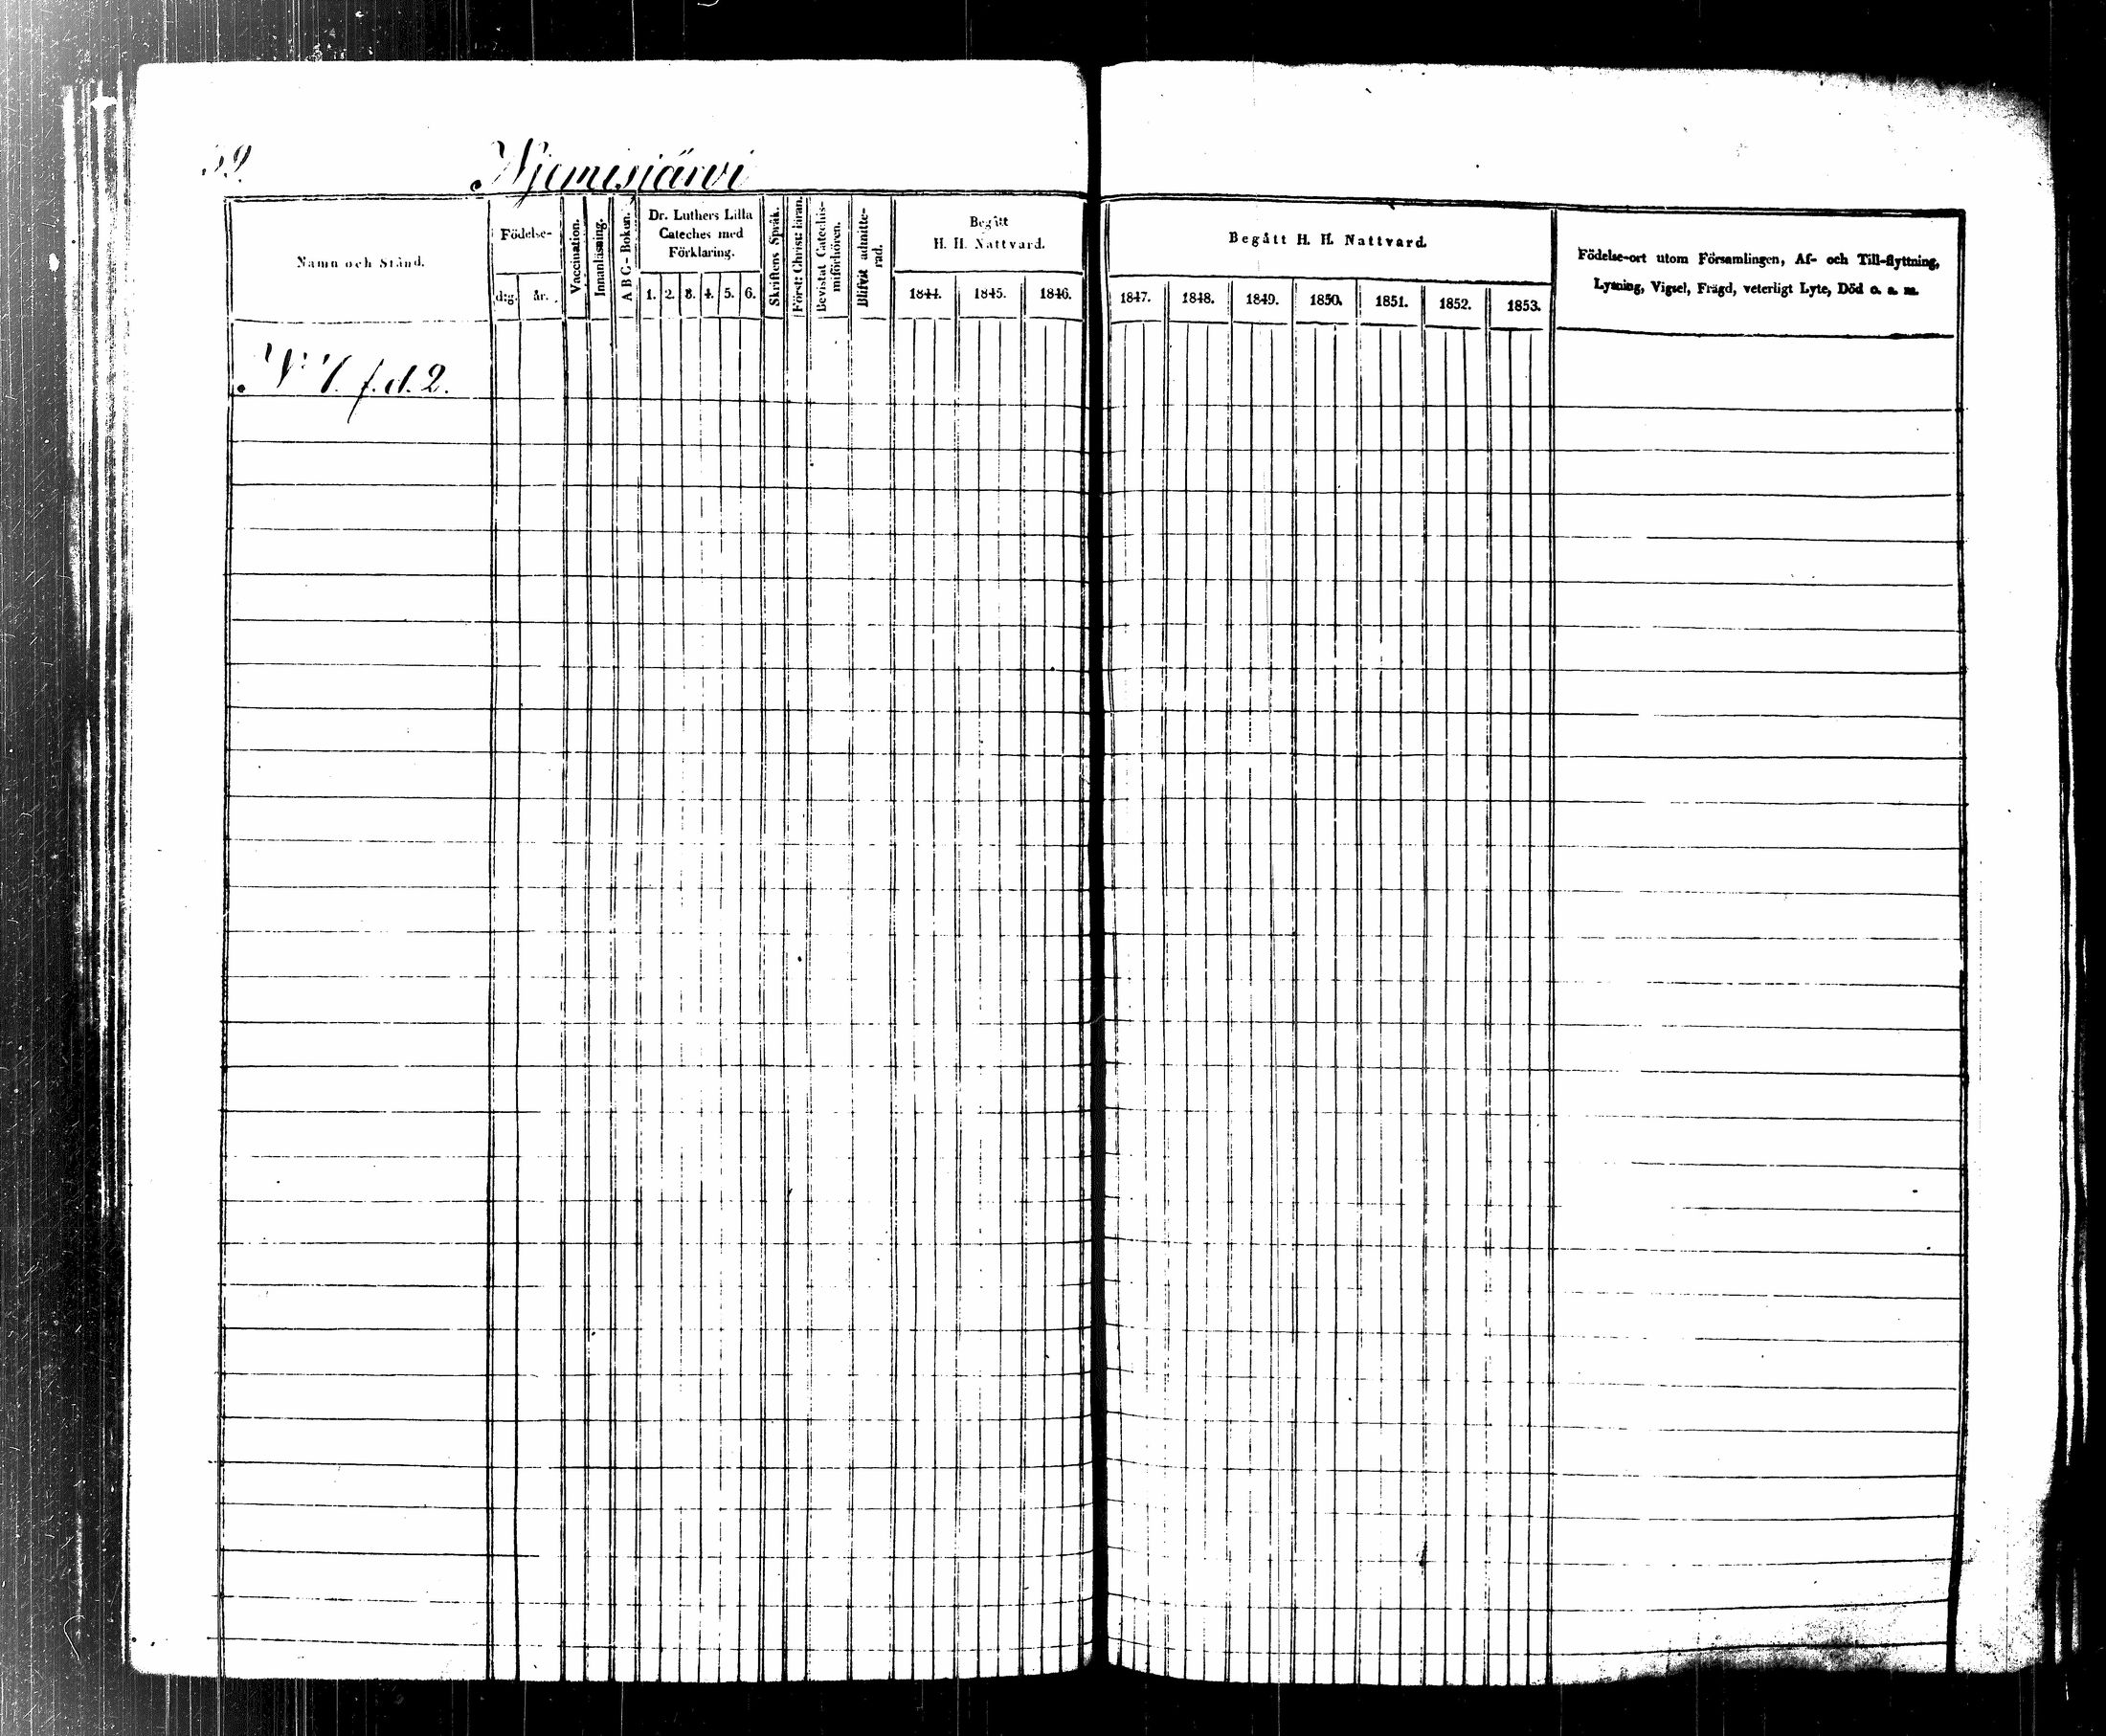 39.
Njemisjärvi
Namn och Stånd.
Födelse-
d:g.
år.
Vaccination.
Innanläsning.
A B C- Boken.
Dr. Luthers Lilla
Cateches med
Förklaring.
1. 2. 3. 4. 5. 6.
Skriftens Språk.
Först: Christ: läran.
Bevistat Catechis-
miförhören.
Blifvit admitte-
rad.
Begått
H. H. Nattvard.
1844. 1845. 1846.
Begått H. H. Nattvard.
1847. 1848. 1849. 1850. 1851. 1852. 1853.
Födelse-ort utom Församlingen, Af- och Till-flyttning,
Lysning, Vigsel, Frägd, veterligt Lyte, Död o. a. m.
f. d. 2.